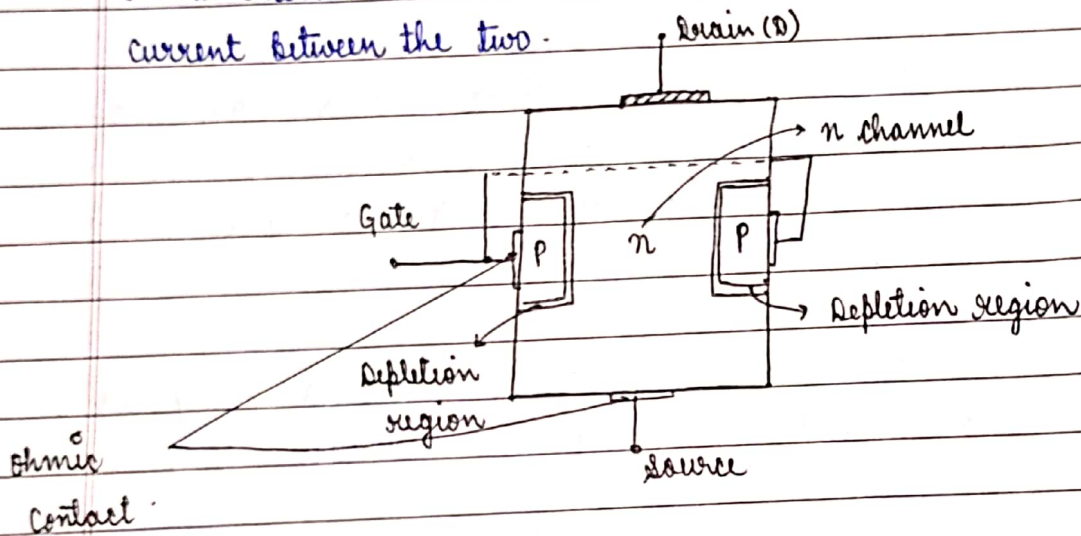 current between the two.
Drain (D)
n channel
Gate
P
n
P
Depletion region
Depletion
region
ohmic
contact
Source